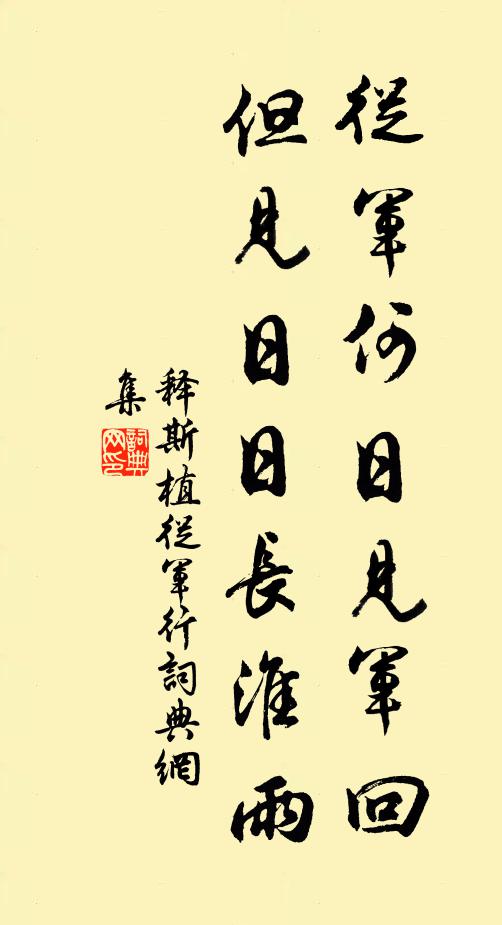 從軍何日見軍回
但見日日長淮雨
释斯植從軍行詞典網
集
詞典
网印